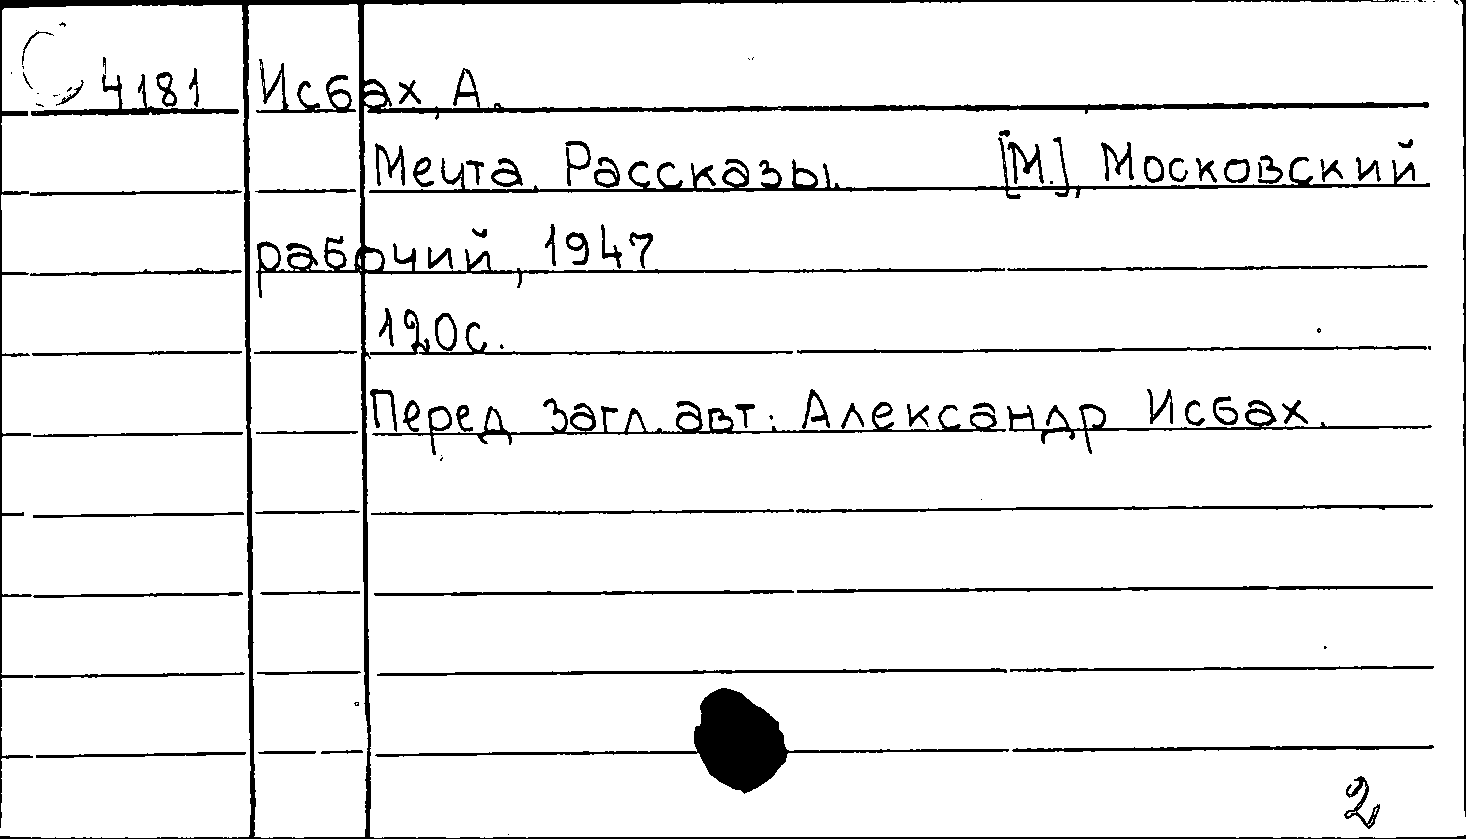 С 4181 Исбах, А.
Мечта. Рассказы. [М.], Московский
рабочий, 1947
120с.
Перед загл. авт: Александр Исбах.
2